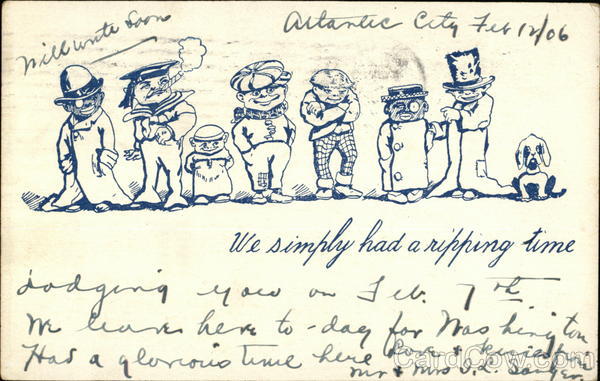 Will write Soon
Atlantic City Feb 12/06
We simply had a ripping time
dodging you on Feb. 7th
We leave here to-day for Washington
Had a glorious time here Love +
Mr + Mrs
CardCow.com